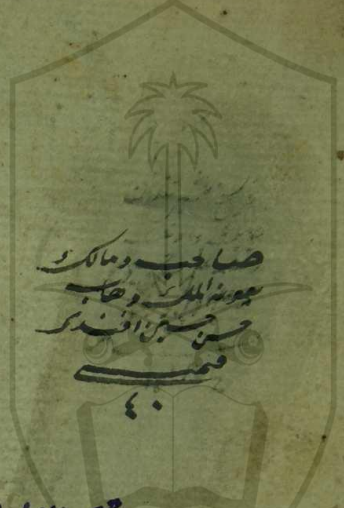 صاحب ومالك
بعونه الملك وهاب
حسن حسين افندى
قيمتى
٤٠